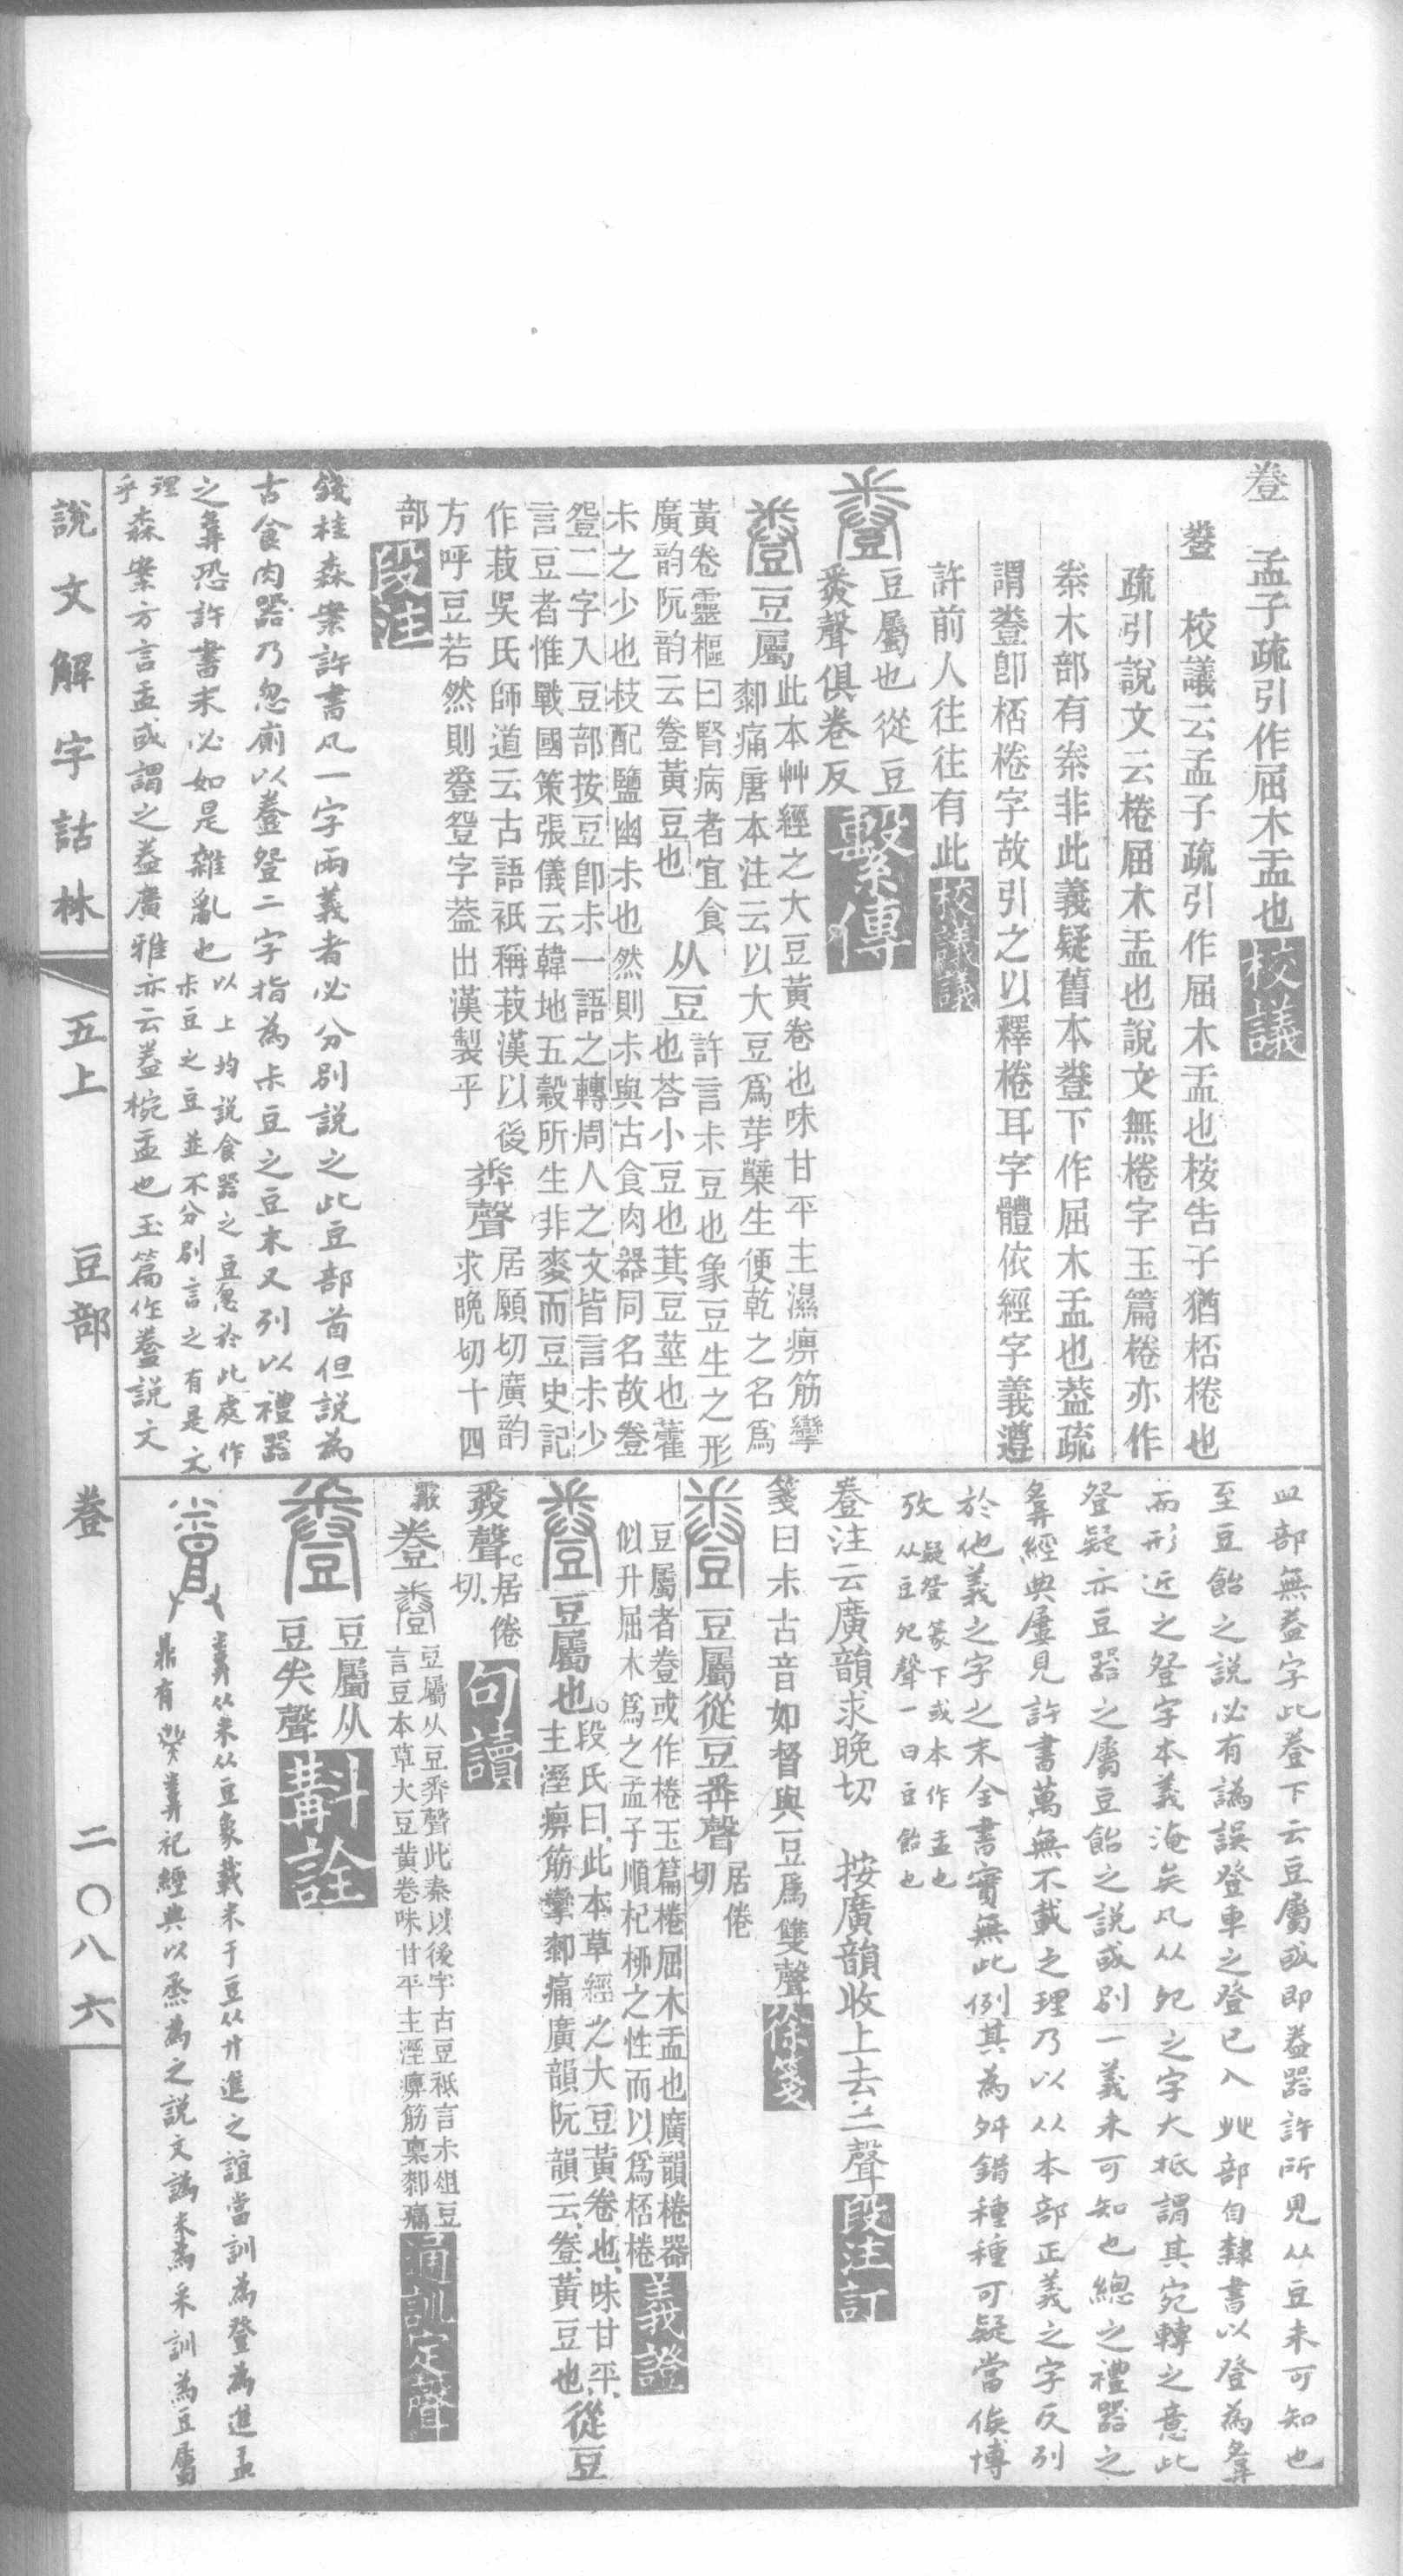 豋　孟子疏引作屈木盂也校議
豋　校議云孟子疏引作屈木盂也桉告子猶桮棬也
疏引說文云棬屈木盂也說文無棬字玉篇棬亦作
桊木部有桊非此義疑舊本豋下作屈木盂也葢疏
謂豋卽桮棬字故引之以釋棬耳字體依經字義遵
許前人往往有此校議議
豆屬也從豆
聲俱卷反繫傳
豆屬此本艸經之大豆黃卷也味甘平主濕痹筋攣
厀痛唐本注云以大豆爲芽糵生便乾之名爲
黃卷靈樞曰腎病者宜食
廣韵阮韵云豋黃豆也
从豆許言尗豆也象豆生之形
也荅小豆也萁豆莖也藿
尗之少也枝配鹽幽尗也然則尗與古食肉器同名故豋
䝀二字入豆部按豆卽尗一語之轉周人之文皆言尗少
言豆者惟戰國策張儀云韓地五穀所生非麥而豆史記
作菽吳氏師道云古語衹稱菽漢以後
方呼豆若然則豋䝀字葢出漢製乎
聲居願切廣韵
求晚切十四
部段注
錢桂森案許書凡一字兩義者必分別說之此豆部首但說為
古食肉器乃忽廁以豋䝀二字指為尗豆之豆末又列以禮器
之䇺恐許書未必如是雜亂也以上均說食器之豆忽於此處作
尗豆之豆並不分別言之有是文
理
乎森案方言盂或謂之㿽廣雅亦云㿽椀盂也玉篇作㿽說文
皿部無㿽字此豋下云豆屬或即㿽器許所見从豆未可知也
至豆飴之說必有譌誤登車之登已入癶部自隸書以登為
而形近之䝀字本義淹矣凡从夗之字大抵謂其宛轉之意此
䝀疑亦豆器之屬豆飴之說或別一義未可知也總之禮器之
經典屢見許書萬無不載之理乃以从本部正義之字反列
於他義之字之末全書實無此例其為舛錯種種可疑當俟博
攷疑䝀篆下或本作盂也
从豆夗聲一曰豆飴也
豋注云廣韻求晚切　按廣韻收上去二聲段注訂
箋曰尗古音如督與豆爲雙聲徐箋
豆屬從豆聲居倦
切
豆屬者豋或作棬玉篇棬屈木盂也廣韻棬器
似升屈木爲之孟子順杞柳之性而以爲桮棬義證
豆屬也段氏曰此本草經之大豆黃卷也味甘平
主溼痹筋攣厀痛廣韻阮韻云豋黃豆也從豆
聲居倦
切句讀
豋豆屬从豆聲此秦以後字古豆衹言尗俎豆
言豆本草大豆黃卷味甘平主溼痹筋攣厀痛通訓定聲
豆屬从
豆聲斠詮
从米从豆象載米于豆从廾進之誼當訓為登為進盂
鼎有祀經典以烝為之說文譌米為釆訓為豆屬
說文解字詁林　五上　豆部　豋　二〇八六